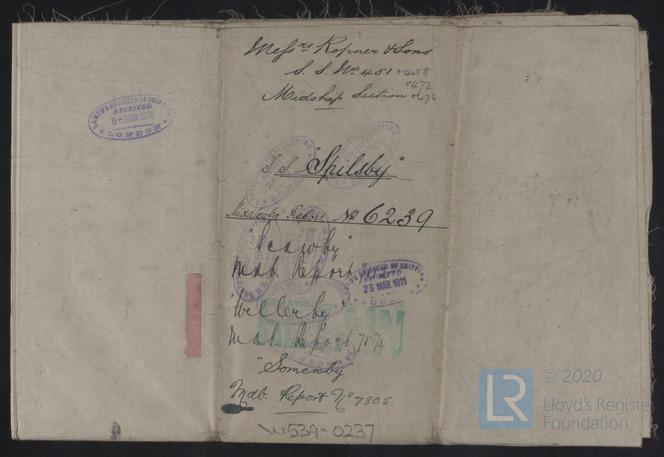 Messrs Ropner & Sons
S. S. No 451 + 458
+ 472
Midship Section + 474
LLOYD'S REGISTER OF SHIPPING
RECEIVED
9 - MAR. 1910
LONDON
S S "Spilsby"
Middlesbro' Report No 6239
"Scawby"
Mdb. Report
23 MAR. 1911
"Willerby"
Mdb Report 7576
"Somersby"
Mdb. Report No 7805.
W539-0237
LR
© 2020
Lloyd's Register
Foundation